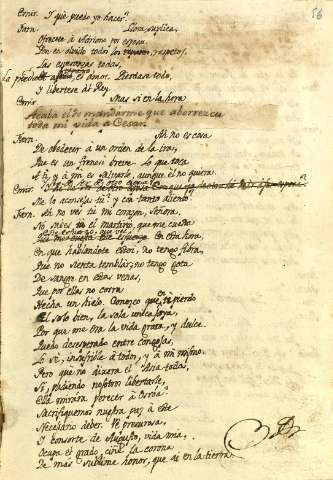 56
Emir. Y què puedo yo hacer?
Farn. Llora, suplica,
Ofrecete à Adriano mi esposa.
Pon en olvido todos los respetos,
Las esperanzas todas,
la piedad, el amor. Pierdase todo,
Y libertese al Rey.
Emir. Mas si en la hora
Acaba el de mandarme que aborrezca
toda mi vida a Cesar.
Farn. Ah no es cosa
De obedecer à un orden de la ira,
Que es un frenesí breve. Lo que toca
A ti, y à mi es salvarle, aunque èl no quiera.
Emir.
Me lo aconsejas tù? y con tanto aliento?
Farn. Ah no ves tù mi corazon, Señora,
No sabes el martirio, que me cuesta
en esta hora,
En que hablandote estoi, no tengo fibra,
Que no sienta temblar; no tengo gota
De sangre en estas venas,
Que por ellas no corra
Hecha un hielo. Conozco que en ti pierdo
El solo bien, la sola unica joya,
Por que me era la vida grata, y dulce.
Quedo desesperado entre congojas,
Lo sè, insufrible à todos, y à mi mismo.
Pero què no dixera el Asia toda,
Si, pudiendo nosotros libertarle,
Ella mirara perecer à Osroa?
Sacrifiquemos nuestra paz à este
Necesario deber. Vè presurosa,
Y consorte de Augusto, vida mia,
Ocupa el grado, ciñe la corona
De mas sublime honor, que ai en la tierra.